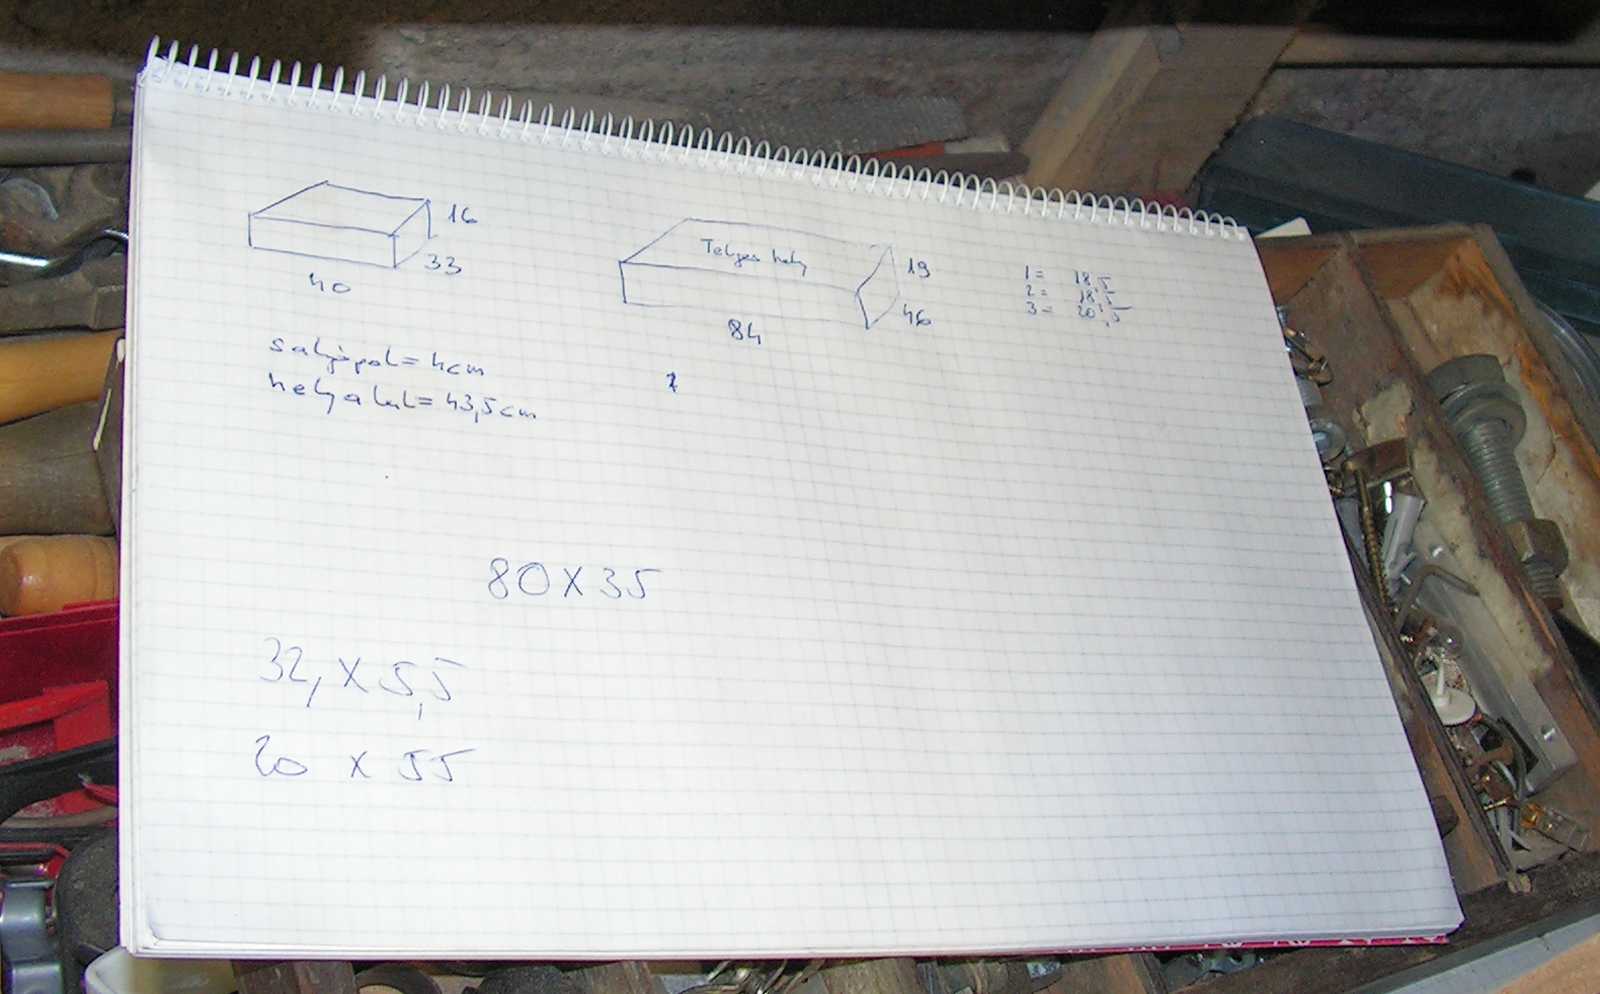 16
33
40
Teljes hely
19
46
84
1 = 18,5
2 = 18,5
3 = 20,5
= 4cm
hely alul = 43,5cm
80 X 35
32, X 5,5
20 X 55